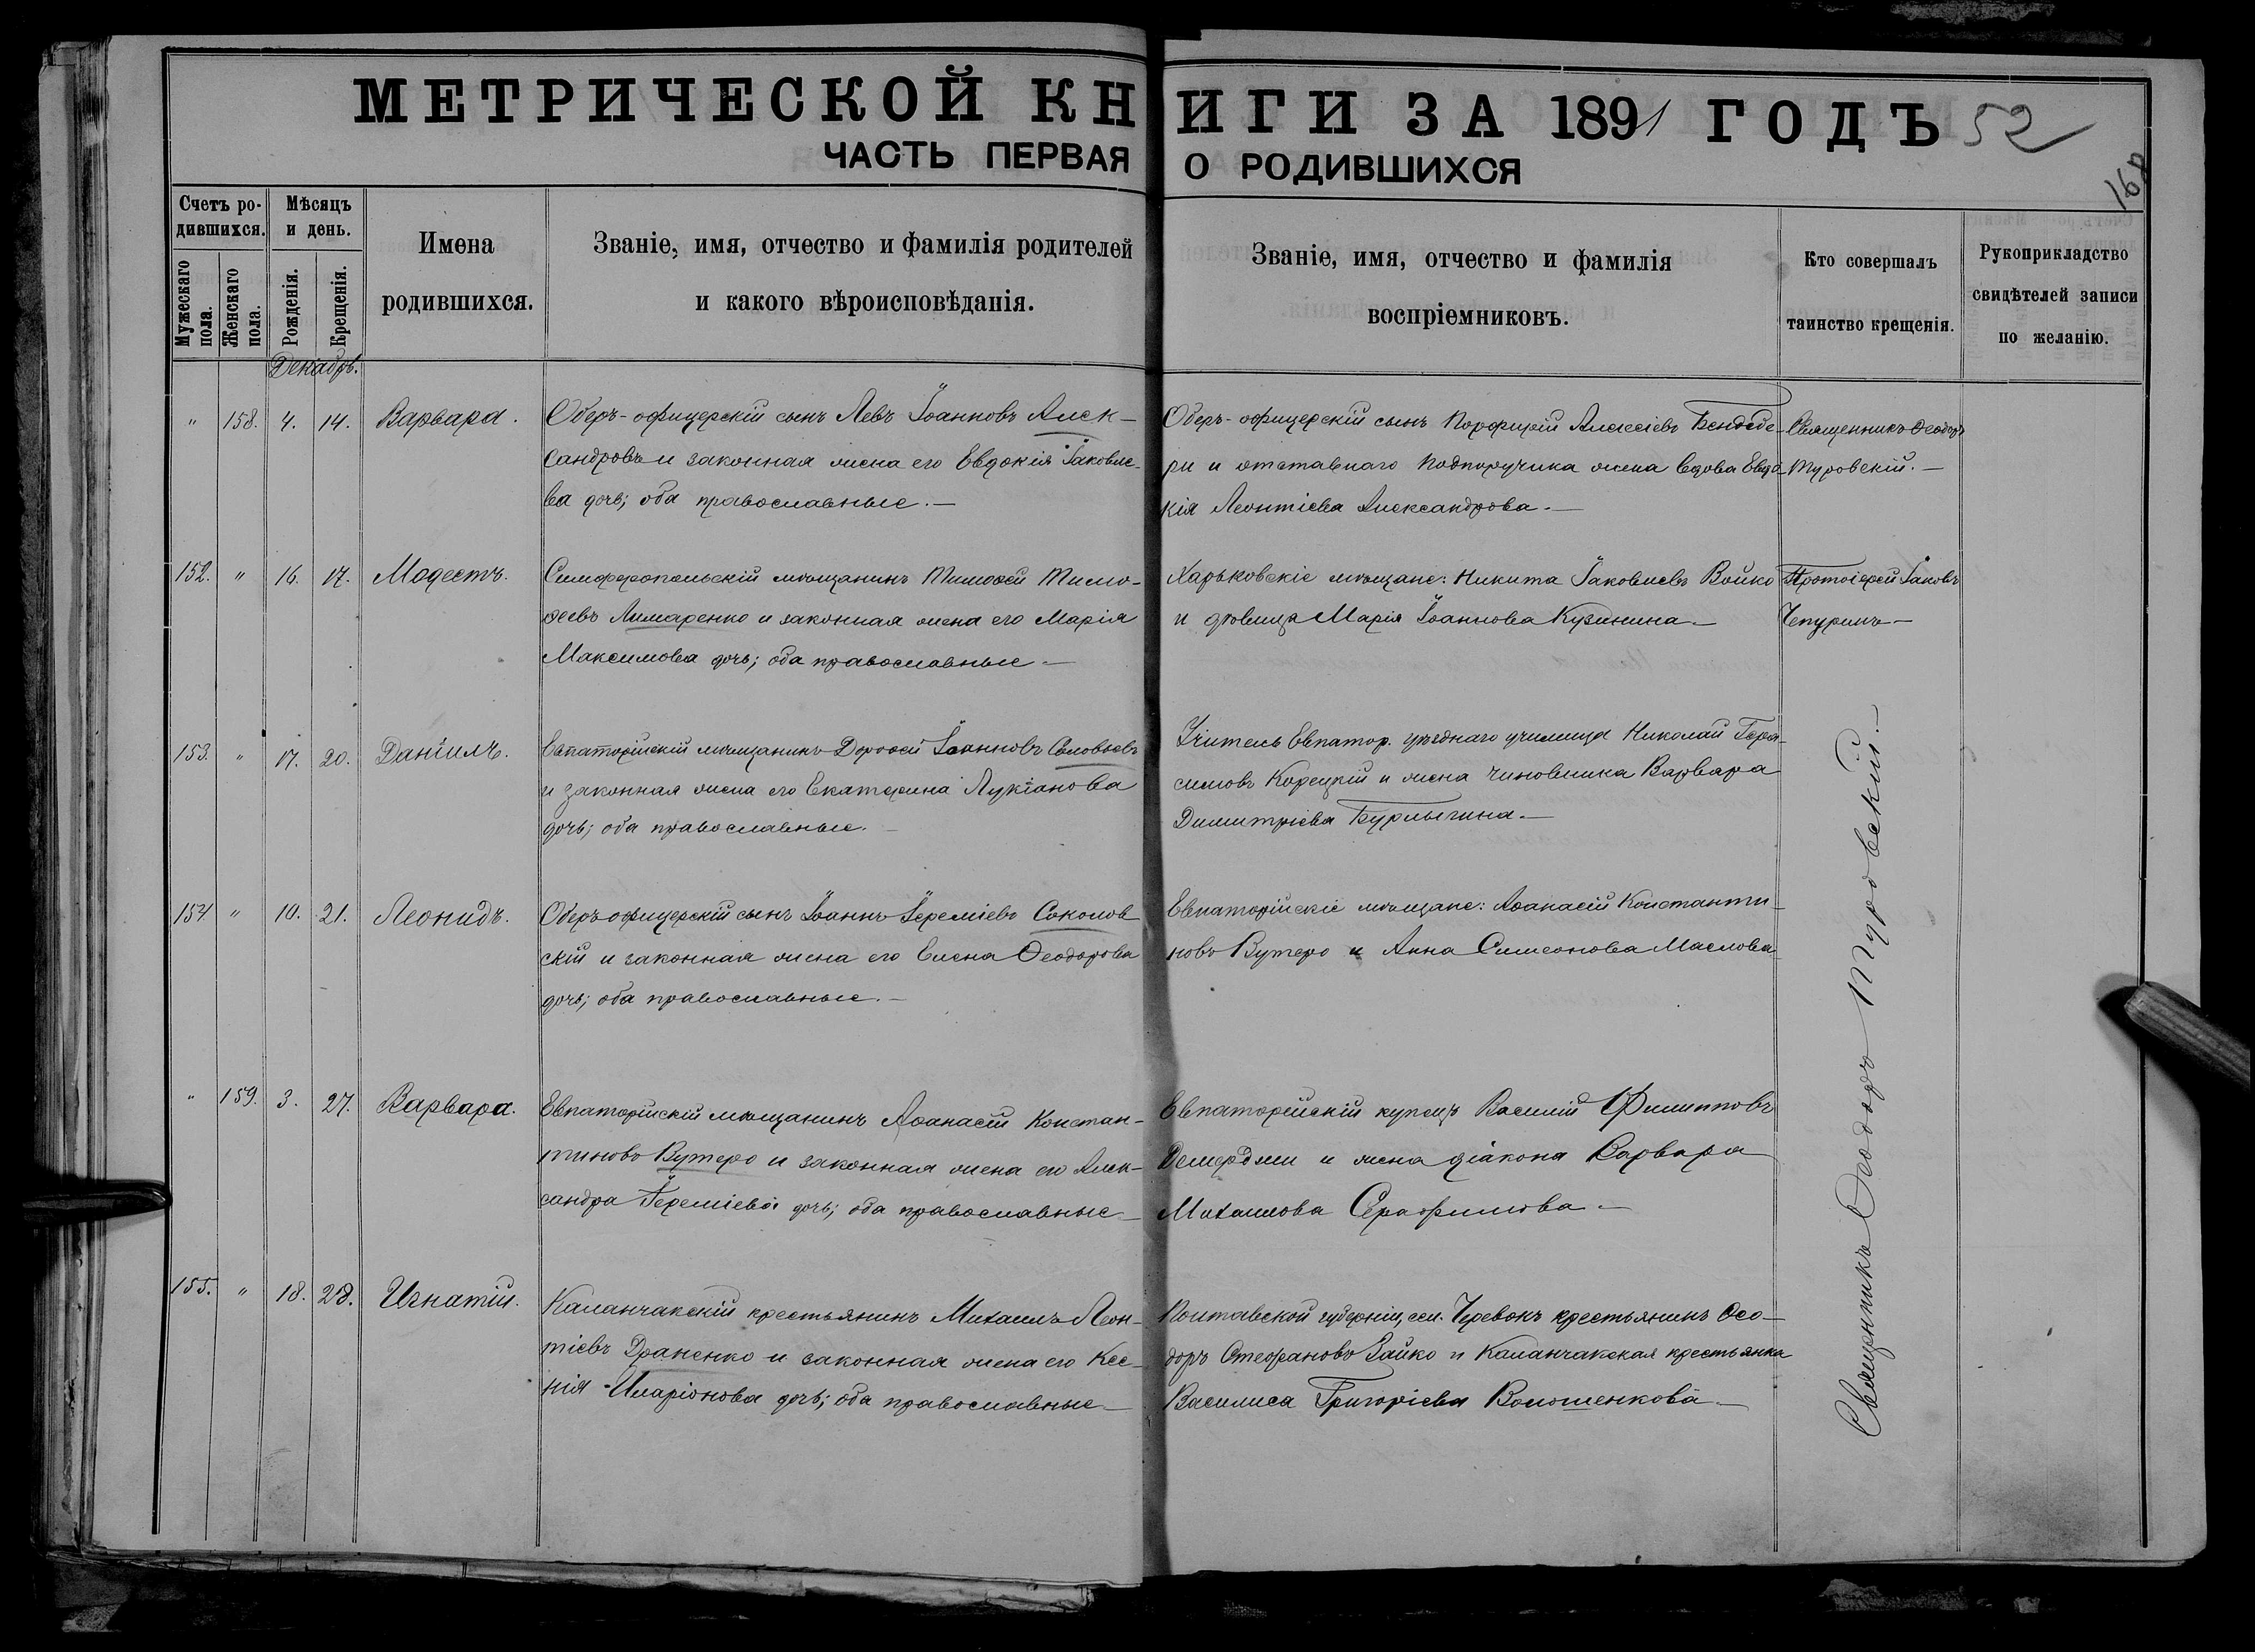 МЕТРИЧЕСКОЙ КНИГИ ЗА 1891 ГОДЪ 52
ЧАСТЬ ПЕРВАЯ О РОДИВШИХСЯ
Счетъ ро-
дившихся.
Мужескаго
пола.
Женскаго
пола.
Мѣсяцъ
и день.
Рожденія.
Крещенія.
Имена
родившихся.
Званіе, имя, отчество и фамилія родителей
и какого вѣроисповѣданія.
Званіе, имя, отчество и фамилія
воспріемниковъ.
Кто совершалъ
таинство крещенія.
Рукоприкладство
свидѣтелей записи
по желанію.
Декабрь.
" 158. 4. 14. Варвара.
Оберъ-офицерскій сынъ Левъ Іоанновъ Алек-
сандровъ и законная жена его Евдокія Іаковле-
ва дочь; оба православные.—
Оберъ-офицерскій сынъ Порфирій Алексіевъ Бендебе-
ри и отставнаго подпоручика жена вдова Евдо-
кія Леонтіева Александрова.—
Священникъ Ѳеодоръ
Туровскій.—
152. " 16. 17. Модестъ.
Симферопольскій мѣщанинъ Тимоѳей Тимо-
ѳеевъ Лимаренко и законная жена его Марія
Максимова дочь; оба православные—
Харьковскіе мѣщане: Никита Іаковлевъ Войко
и дѣвица Марія Іоаннова Кузинина—
Протоіерей Іаковъ
Чепуринъ—
153. " 17. 20. Даніилъ.
Евпаторійскій мѣщанинъ Дороѳей Іоанновъ Соловьевъ
и законная жена его Екатерина Лукіанова
дочь; оба православные.—
Учитель Евпатор. уѣзднаго училища Николай Гера-
симовъ Корецкій и жена чиновника Варвара
Димитріева Бурлыгина.—
154 " 10. 21. Леонидъ.
Оберъ офицерскій сынъ Іоаннъ Іереміевъ Соколов-
скій и законная жена его Елена Ѳеодорова
дочь; оба православные.—
Евпаторійскіе мѣщане: Аѳанасій Константи-
новъ Вутеро и Анна Симеонова Маслова
" 159. 3. 27. Варвара.
Евпаторійскій мѣщанинъ Аѳанасій Констан-
тиновъ Вутеро и законная жена его Алек-
сандра Іереміева дочь; оба православные—
Евпаторійскій купецъ Василій Филипповъ
Демерджи и жена діакона Варвара
Михаилова Серафимова—
155. " 18. 28. Игнатій.
Каланчакскій крестьянинъ Михаилъ Леон-
тіевъ Драненко и законная жена его Ксе-
нія Иларіонова дочь; оба православные—
Полтавской губерніи, сел. Черевокъ крестьянинъ Ѳео-
доръ Стефановъ Зайко и Каланчакская крестьянка
Василиса Григоріева Волошенкова—
Священникъ Ѳеодоръ Туровскій.—